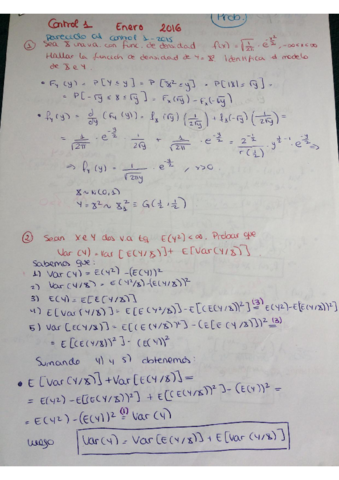 Prob.
Control 1 Enero 2016
Parecido al control 1-2015
① Sea X una v.a con func. de densidad f(x) = √(1/2π) · e^(-x²/2), -∞<x<∞
Hallar la función de densidad de Y = X². Identifica el modelo
de X e Y
• F_Y(y) = P[Y ≤ y] = P[X² ≤ y] = P[|X| ≤ √y] =
= P[-√y ≤ X ≤ √y] = F_X(√y) - F_X(-√y)
• f_Y(y) = ∂/∂y (F_Y(y)) = f_X(√y) (1/2√y) + f_X(-√y) (1/2√y) =
= 1/√2π · e^(-y/2) · 1/2√y + 1/√2π · e^(-y/2) · 1/2√y = 2^(-1/2)/Γ(1/2) · y^(1/2-1) · e^(-y/2) ⇒
⇒ f_Y(y) = 1/√2πy · e^(-y/2), y>0
X ~ N(0,1)
Y = X² ~ χ²₁ = G(1/2, 1/2)
② Sean X e Y dos v.a tq E(Y²) < ∞, Probar que
Var(Y) = Var[E(Y/X)] + E[Var(Y/X)]
Sabemos que:
1) Var(Y) = E(Y²) - (E(Y))²
2) Var(Y/X) = E(Y²/X) - (E(Y/X))²
3) E(Y) = E[E(Y/X)]
4) E[Var(Y/X)] = E[E(Y²/X)] - E[(E(Y/X))²] (3)= E(Y²) - E[(E(Y/X))²]
5) Var[E(Y/X)] = E[(E(Y/X))²] - (E[E(Y/X)])² (3)=
= E[(E(Y/X))²] - (E(Y))²
Sumando 4) y 5) obtenemos:
• E[Var(Y/X)] + Var[E(Y/X)] =
= E(Y²) - E[(E(Y/X))²] + E[(E(Y/X))²] - (E(Y))² =
= E(Y²) - (E(Y))² (1)= Var(Y)
luego Var(Y) = Var[E(Y/X)] + E[Var(Y/X)]